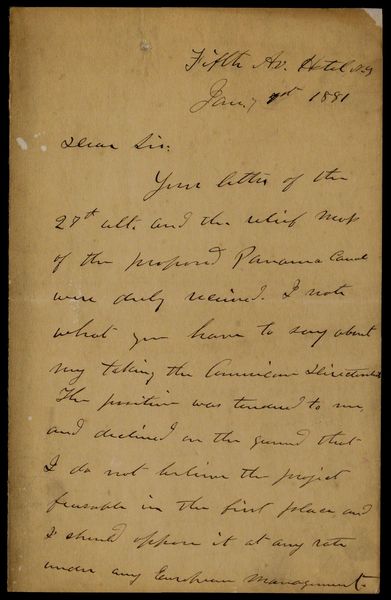 Fifth Av. Hotel N.Y
Jany 1881
Dear Sir:
Your letter of the
27th ult. and the relief map
of the proposed Panama Canal
were duly received. I note
what you have to say about
my taking the American Directorship
The position was tendered to me
and declined on the ground that
I do not believe the project
feasable in the first place and
I should oppose it at any rate
under any European Management.